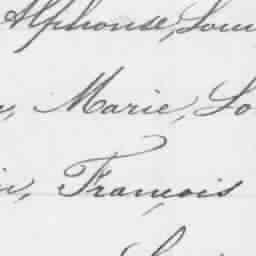 Alphonse, Lou
, Marie, Lo
, François